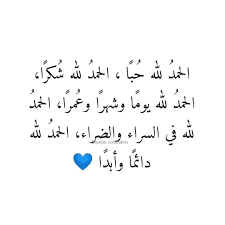 الحمدُ لله حُبًا ، الحمدُ لله شُكرًا،
الحمدُ لله يومًا وشهرًا وعُمرًا، الحمدُ
لله في السراء والضراء، الحمدُ لله
دائمًا وأبدًا 💙